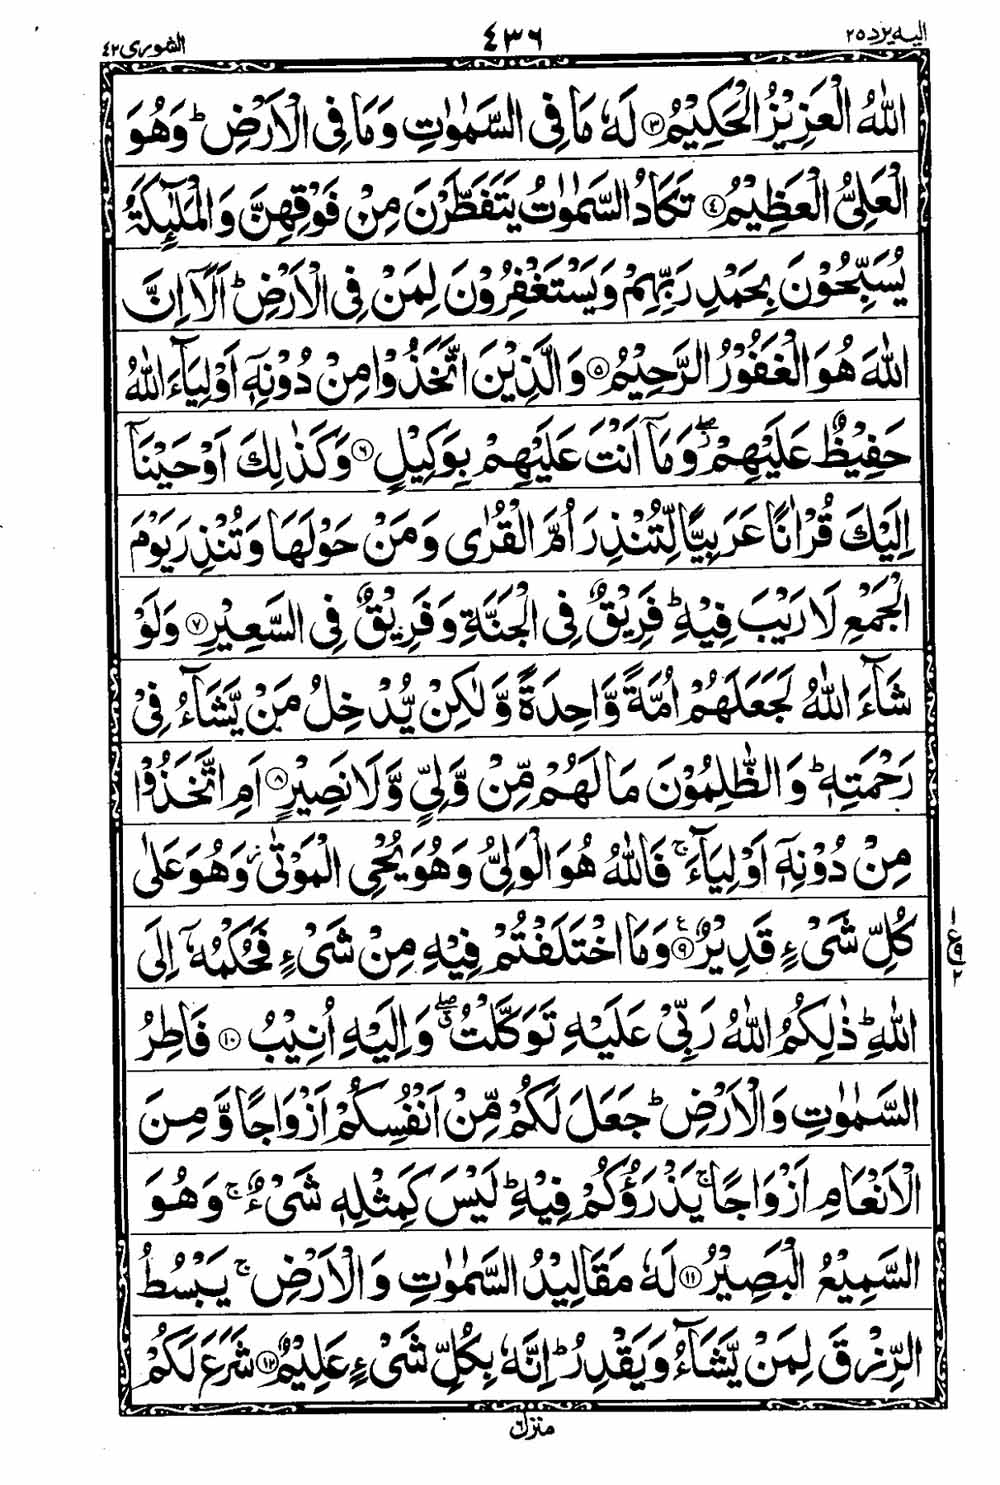 الیه یرد ٢٥ ٤٣٦ الشوری ٤٢
اللّٰهُ الْعَزِيْزُ الْحَكِيْمُ ۝٣ لَهٗ مَا فِي السَّمٰوٰتِ وَمَا فِي الْاَرْضِ ؕ وَهُوَ
الْعَلِيُّ الْعَظِيْمُ ۝٤ تَكَادُ السَّمٰوٰتُ يَتَفَطَّرْنَ مِنْ فَوْقِهِنَّ وَالْمَلٰٓئِكَةُ
يُسَبِّحُوْنَ بِحَمْدِ رَبِّهِمْ وَيَسْتَغْفِرُوْنَ لِمَنْ فِي الْاَرْضِ ؕ اَلَاۤ اِنَّ
اللّٰهَ هُوَ الْغَفُوْرُ الرَّحِيْمُ ۝٥ وَالَّذِيْنَ اتَّخَذُوْا مِنْ دُوْنِهٖۤ اَوْلِيَآءَ اللّٰهُ
حَفِيْظٌ عَلَيْهِمْ ۖ وَمَاۤ اَنْتَ عَلَيْهِمْ بِوَكِيْلٍ ۝٦ وَكَذٰلِكَ اَوْحَيْنَاۤ
اِلَيْكَ قُرْاٰنًا عَرَبِيًّا لِّتُنْذِرَ اُمَّ الْقُرٰى وَمَنْ حَوْلَهَا وَتُنْذِرَ يَوْمَ
الْجَمْعِ لَا رَيْبَ فِيْهِ ؕ فَرِيْقٌ فِي الْجَنَّةِ وَفَرِيْقٌ فِي السَّعِيْرِ ۝٧ وَلَوْ
شَآءَ اللّٰهُ لَجَعَلَهُمْ اُمَّةً وَّاحِدَةً وَّلٰكِنْ يُّدْخِلُ مَنْ يَّشَآءُ فِيْ
رَحْمَتِهٖ ؕ وَالظّٰلِمُوْنَ مَا لَهُمْ مِّنْ وَّلِيٍّ وَّلَا نَصِيْرٍ ۝٨ اَمِ اتَّخَذُوْا
مِنْ دُوْنِهٖۤ اَوْلِيَآءَ ۚ فَاللّٰهُ هُوَ الْوَلِيُّ وَهُوَ يُحْيِ الْمَوْتٰى ؗ وَهُوَ عَلٰى
كُلِّ شَيْءٍ قَدِيْرٌ ۝٩ وَمَا اخْتَلَفْتُمْ فِيْهِ مِنْ شَيْءٍ فَحُكْمُهٗۤ اِلَى
اللّٰهِ ؕ ذٰلِكُمُ اللّٰهُ رَبِّيْ عَلَيْهِ تَوَكَّلْتُ ۖ وَاِلَيْهِ اُنِيْبُ ۝١٠ فَاطِرُ
السَّمٰوٰتِ وَالْاَرْضِ ؕ جَعَلَ لَكُمْ مِّنْ اَنْفُسِكُمْ اَزْوَاجًا وَّمِنَ
الْاَنْعَامِ اَزْوَاجًا ۚ يَذْرَؤُكُمْ فِيْهِ ؕ لَيْسَ كَمِثْلِهٖ شَيْءٌ ۚ وَهُوَ
السَّمِيْعُ الْبَصِيْرُ ۝١١ لَهٗ مَقَالِيْدُ السَّمٰوٰتِ وَالْاَرْضِ ۚ يَبْسُطُ
الرِّزْقَ لِمَنْ يَّشَآءُ وَيَقْدِرُ ؕ اِنَّهٗ بِكُلِّ شَيْءٍ عَلِيْمٌ ۝١٢ شَرَعَ لَكُمْ
منزل ٦